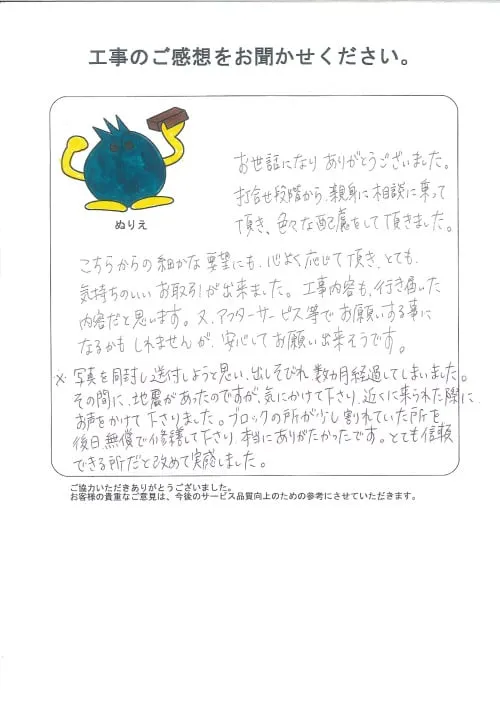 工事のご感想をお聞かせください。
ぬりえ
お世話になり ありがとうございました。
打合せ段階から、親身に相談に乗って
頂き、色々な配慮をして頂きました。
こちらからの細かな要望にも、心よく応じて頂き、とても、
気持ちのいいお取引が出来ました。工事内容も、行き届いた
内容だと思います。又、アフターサービス等でお願いする事に
なるかもしれませんが、安心してお願い出来そうです。
※ 写真を同封し送付しようと思い、出しそびれ、数カ月経過してしまいました。
その間に、地震があったのですが、気にかけて下さり、近くに来られた際に、
お声をかけて下さりました。ブロックの所が少し割れていた所を、
後日無償で修繕して下さり、本当にありがたかったです。とても信頼
できる所だと改めて実感しました。
ご協力いただきありがとうございました。
お客様の貴重なご意見は、今後のサービス品質向上のための参考にさせていただきます。